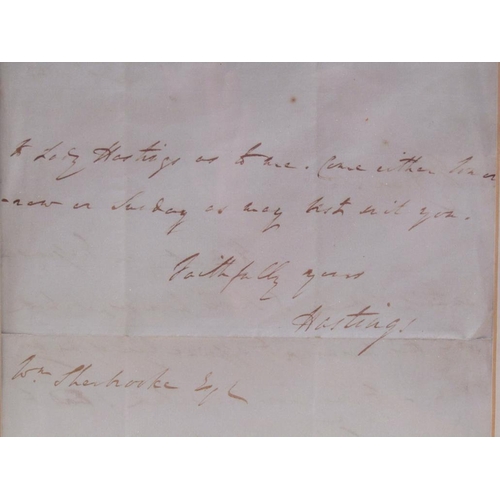 to Lady Hastings as to me. Come either tomor
-row or Sunday as may best suit you.
Faithfully yours
Hastings
Wm Sherbrooke Esqr